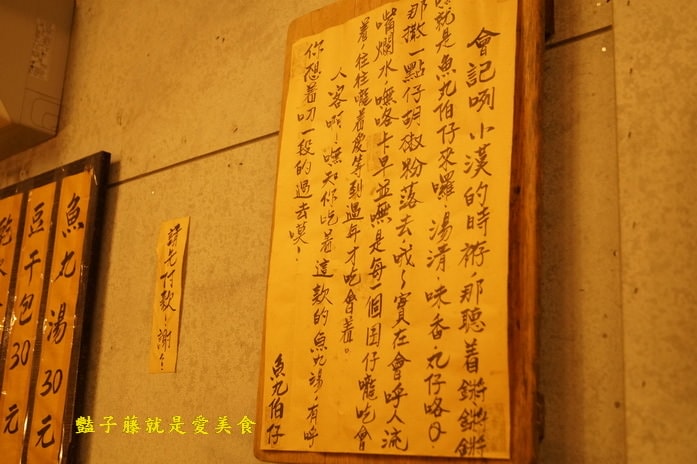 會記咧小漢的時術,那聽着鏘鏘鏘鏘
就是魚丸伯仔來囉,湯清味香丸仔咯Q.
那撒一點仔胡椒粉落去,哦~實在會呼人流
嘴爛水,嘸咯卡早並嘸是每一個囝仔攏吃會
着,往往攏着愛等到過年才吃會着。
人客啊!嘸知你吃着這款的魚丸湯,有呼
你想着叨一段的過去嘆~
魚丸伯仔
請先付款~謝~
魚丸湯30元
豆干包30元
艷子藤就是愛美食